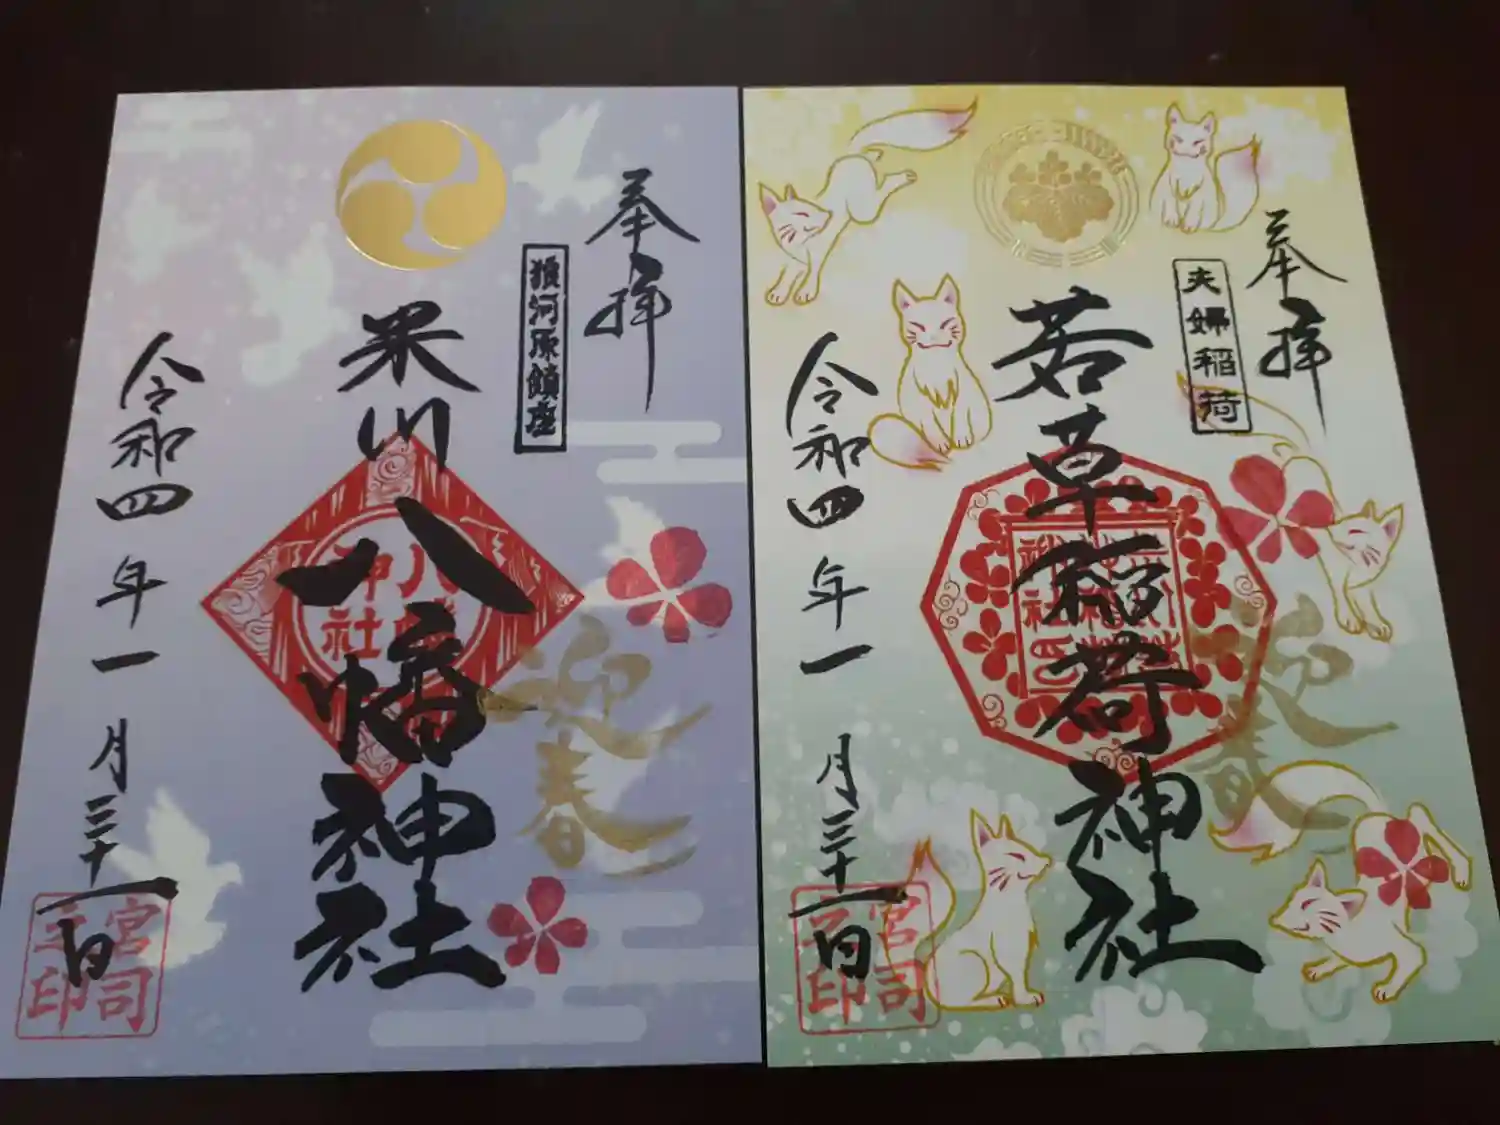 奉拝
狼河原鎮座
米川八幡神社
八幡
神社
迎春
令和四年一月三十一日
宮司
之印
奉拝
夫婦稲荷
若草稲荷神社
迎春
令和四年一月三十一日
宮司
之印